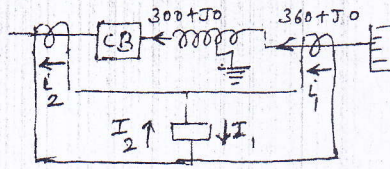 300+J0 360+J0
CB
i2 i1
I2 I1